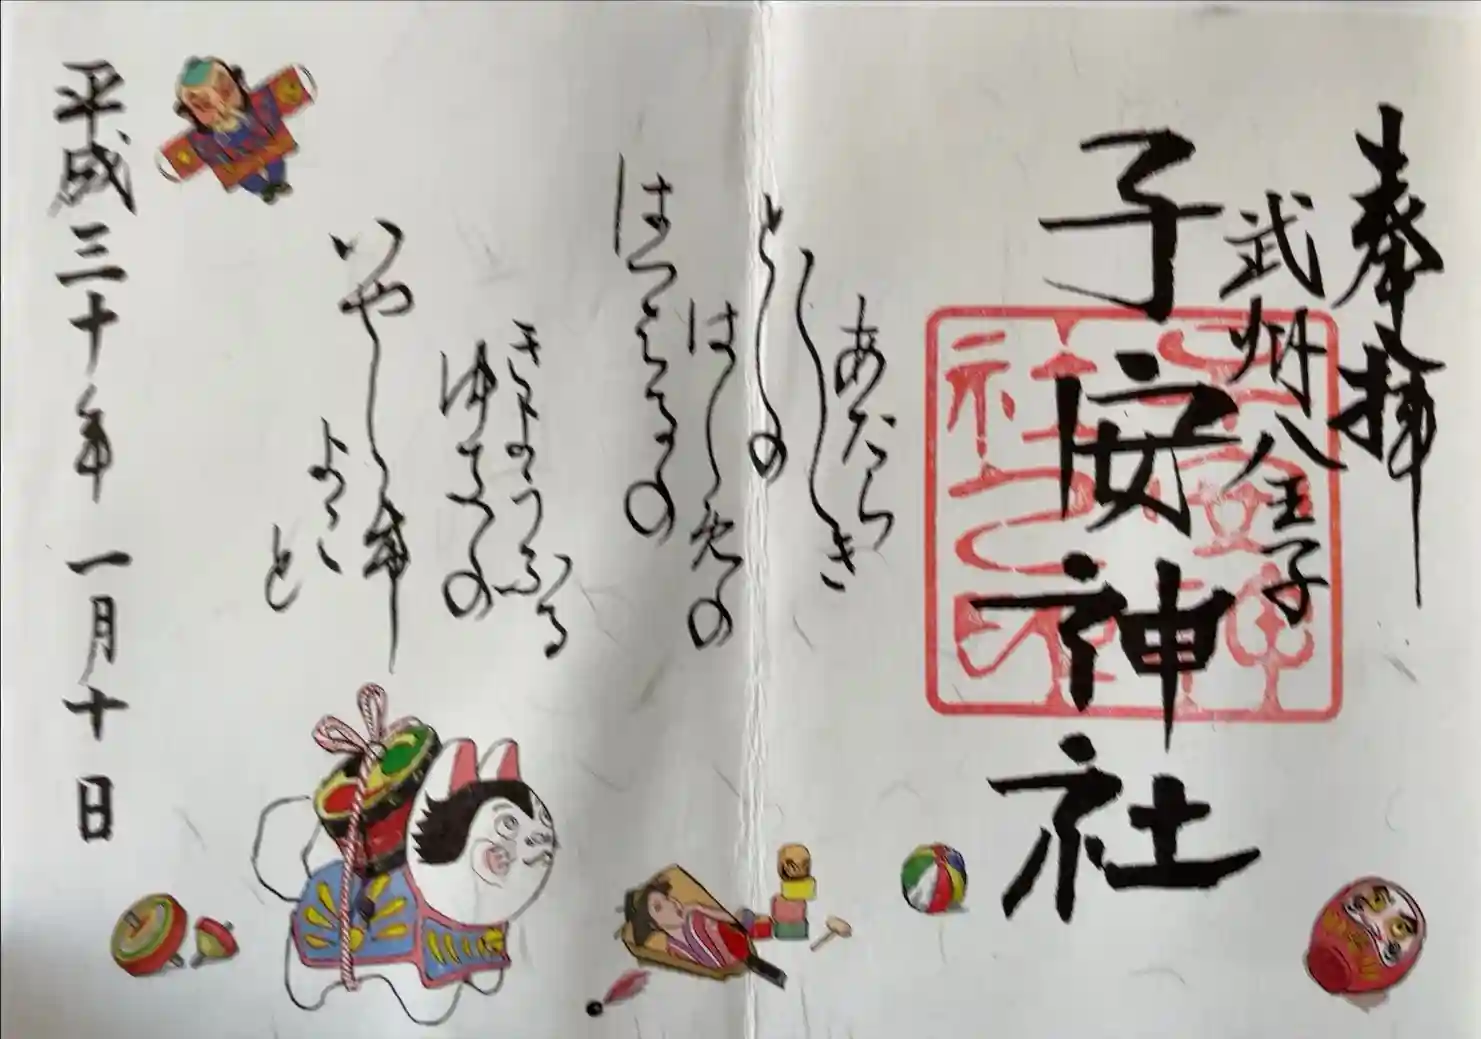 奉拝
武州八王子
子安神社
あたらしき
としの
はじめの
はつはるの
きょうふる
ゆきの
いやしけ
よごと
平成三十年 一月十日